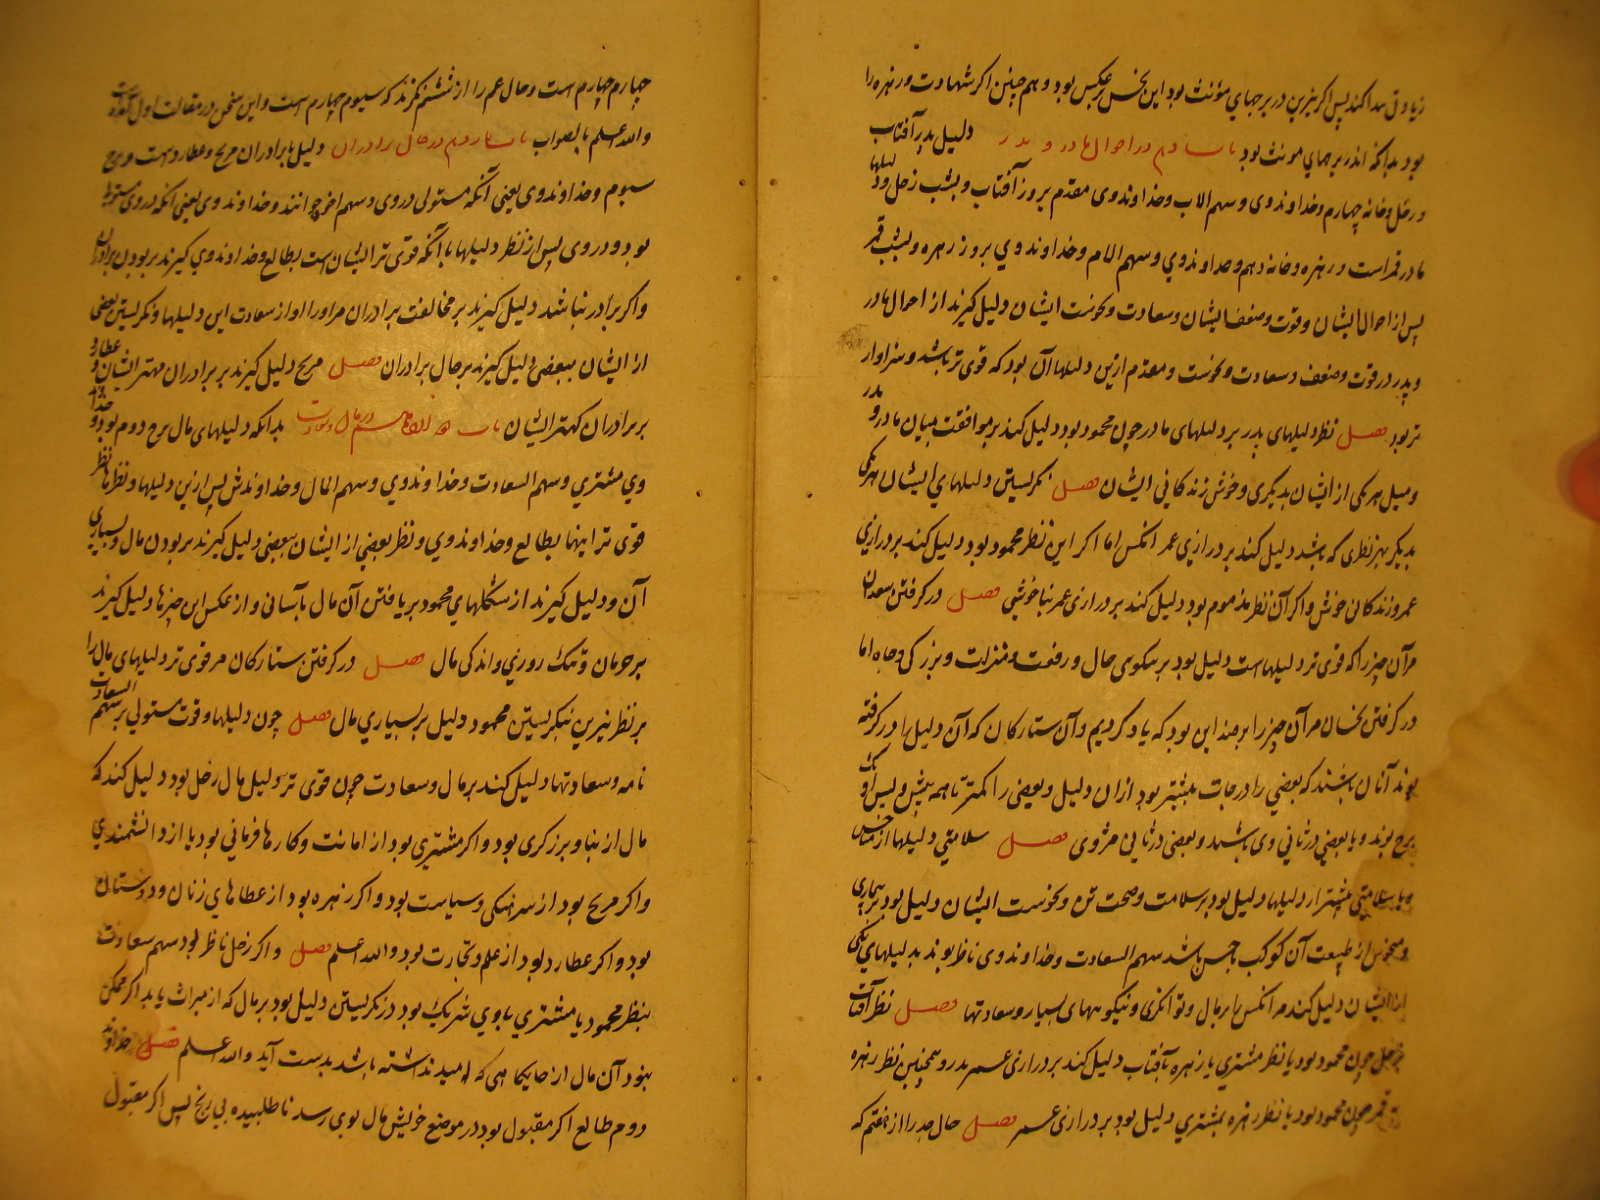 زیادتی پیدا کند پس اگر نیرین در برجهای مؤنث بود این نحس برعکس بود و همچنین اگر شهادت ورزهره را
بود بدانکه اندر برجهای مونث بود باب یازدهم در احوال مادر و پدر دلیل پدر آفتاب
و زحل و خانه چهارم و خداوند وی و سهم الاب و خداوند وی مقدم بروز آفتاب و بشب زحل و دلیلها
مادر قمر است و زهره و خانه دهم و خداوند وی و سهم الام و خداوند وی بروز زهره و بشب قمر
پس از احوال ایشان و قوت و ضعف ایشان و سعادت و نحوست ایشان دلیل گیرند از احوال مادر
و پدر در قوت و ضعف و سعادت و نحوست و مقدم ازین دلیلها آن بود که قوی تر باشد و سزاوار
تر بود فصل نظر دلیلهای پدر بر دلیلهای مادر چون محمود بود دلیل کند بر موافقت میان مادر و پدر
و میل هر یکی از ایشان بدیگری و خوش زندگانی ایشان فصل نگریستن دلیلهای ایشان هر یکی
بدیگر بهر نظری که باشد دلیل کند بر درازی عمر آنکس اما اگر این نظر محمود بود دلیل کند بر درازی
عمر و زندگانی خوش و اگر آن نظر مذموم بود دلیل کند بر درازی عمر بناخوشی فصل در گرفتن سعدان
مر آن چیز را که قوی تر دلیلهاست دلیل بود بر نیکوی حال و رفعت و منزلت و بزرگی و جاه اما
در گرفتن نحسان مر آن چیز را بر ضد این بود که یاد کردیم و آن ستارگان که آن دلیل را در گرفته
بوند آنان باشند که بعضی را درجات بیشتر بود ازان دلیل و بعضی را کمتر تا همه پیش و پس او یک
برج بوند و یا بعضی در ثانی وی باشند و بعضی در ثانی عشر وی فصل سلامتی دلیلها از مناحس
و یا سلامتی بیشتر از دلیلها دلیل بود بر سلامت و صحت تن و نحوست ایشان دلیل بود بر بیماری
از طبیعت آن کوکب باشد سهم السعادت و خداوند وی ناظر بوند بدلیلهای یکی
از ایشان دلیل کند مر آنکس را بر مال و توانگری و نیکوییهای بسیار و سعادتها فصل نظر آفتاب
بزحل چون محمود بود یا نظر مشتری یا زهره بآفتاب دلیل کند بر درازی عمر پدر و همچنین نظر زهره
قمر چون محمود بود یا نظر زهره بمشتری دلیل بود بر درازی عمر فصل حال جد را از هفتم که
چهارم چهارم است و حال عم را از ششم نگرند که سیوم چهارم است و این سخن در مقالت اول آمده است
والله اعلم بالصواب باب دوازدهم در حال برادران دلیل برادران مریخ و عطارد است و برج
سیوم و خداوند وی یعنی آنکه مستولی در وی و سهم اخوه خوانند و خداوند وی یعنی آنکه در وی مستولی
بود و در وی پس از نظر دلیلها با آنکه قوی تر ایشان است بطالع و خداوند وی گیرند بر بودن برادران
و اگر برادر نباشد دلیل گیرند بر مخالفت برادران مر او را و از سعادت این دلیلها و نگریستن بعضی
از ایشان ببعضی دلیل گیرند بر حال برادران فصل مریخ دلیل گیرند بر برادران مهتر ایشان و عطارد
بر برادران کهتر ایشان باب در مال بدانکه دلیلهای مال برج دوم بود و خداوند
وی مشتری و سهم السعادت و خداوند وی و سهم المال و خداوندش پس ازین دلیلها و نظرها نظر
قوی تر اینها بطالع و خداوند وی و نظر بعضی از ایشان ببعضی دلیل گیرند بر بودن مال و بسیاری
آن و دلیل گیرند از شکلهای محمود بر یافتن آن مال بآسانی و از عکس این چیزها دلیل گیرند
بر حرمان و تنگ روزی و اندکی مال فصل در گرفتن ستارگان مر قوی تر دلیلهای مال را
بر نظر نیرین نگریستن محمود دلیل بر بسیاری مال فصل چون دلیلها و قوت مستولی بر سهم السعادت
نامه و سعادتها دلیل کند بر مال و سعادت چون قوی تر دلیل مال زحل بود دلیل کند که
مال از بنا و برزگری بود و اگر مشتری بود از امانت و کارها فرمانی بود یا از دانشمندی
و اگر مریخ بود از سرهنگی و سیاست بود و اگر زهره بود از عطاهای زنان و دوستان
بود و اگر عطارد بود از علم و تجارت بود والله اعلم فصل و اگر زحل ناظر بود سهم سعادت
بنظر محمود یا مشتری با وی شریک بود در نگریستن دلیل بود بر مال که از میراث یابد اگر ممکن
بود آن مال از جایگاهی که امید نداشته باشد بدست آید والله اعلم فصل خداوند
دوم طالع اگر مقبول بود در موضع خویش مال بوی رسد ناطلبیده بی رنج پس اگر مقبول